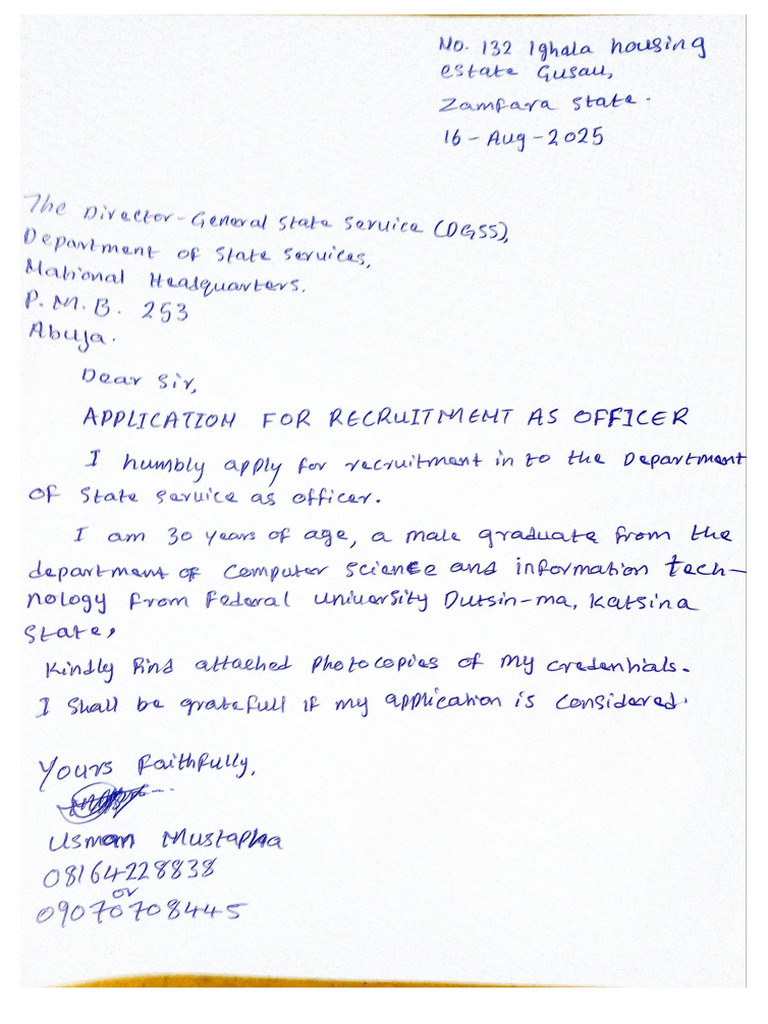 No. 132 Ighala housing
estate Gusau,
Zamfara State.
16-Aug-2025
The Director-General State Service (DGSS),
Department of State Services,
National Headquarters.
P.M.B. 253
Abuja.
Dear Sir,
APPLICATION FOR RECRUITMENT AS OFFICER
I humbly apply for recruitment in to the Department
of State Service as officer.
I am 30 years of age, a male graduate from the
department of Computer Science and information tech-
nology from Federal University Dutsin-ma, Katsina
State,
Kindly find attached photocopies of my credentials.
I shall be gratefull if my application is considered.
Yours faithfully,
Usman Mustapha
08164228838
or
09070708445